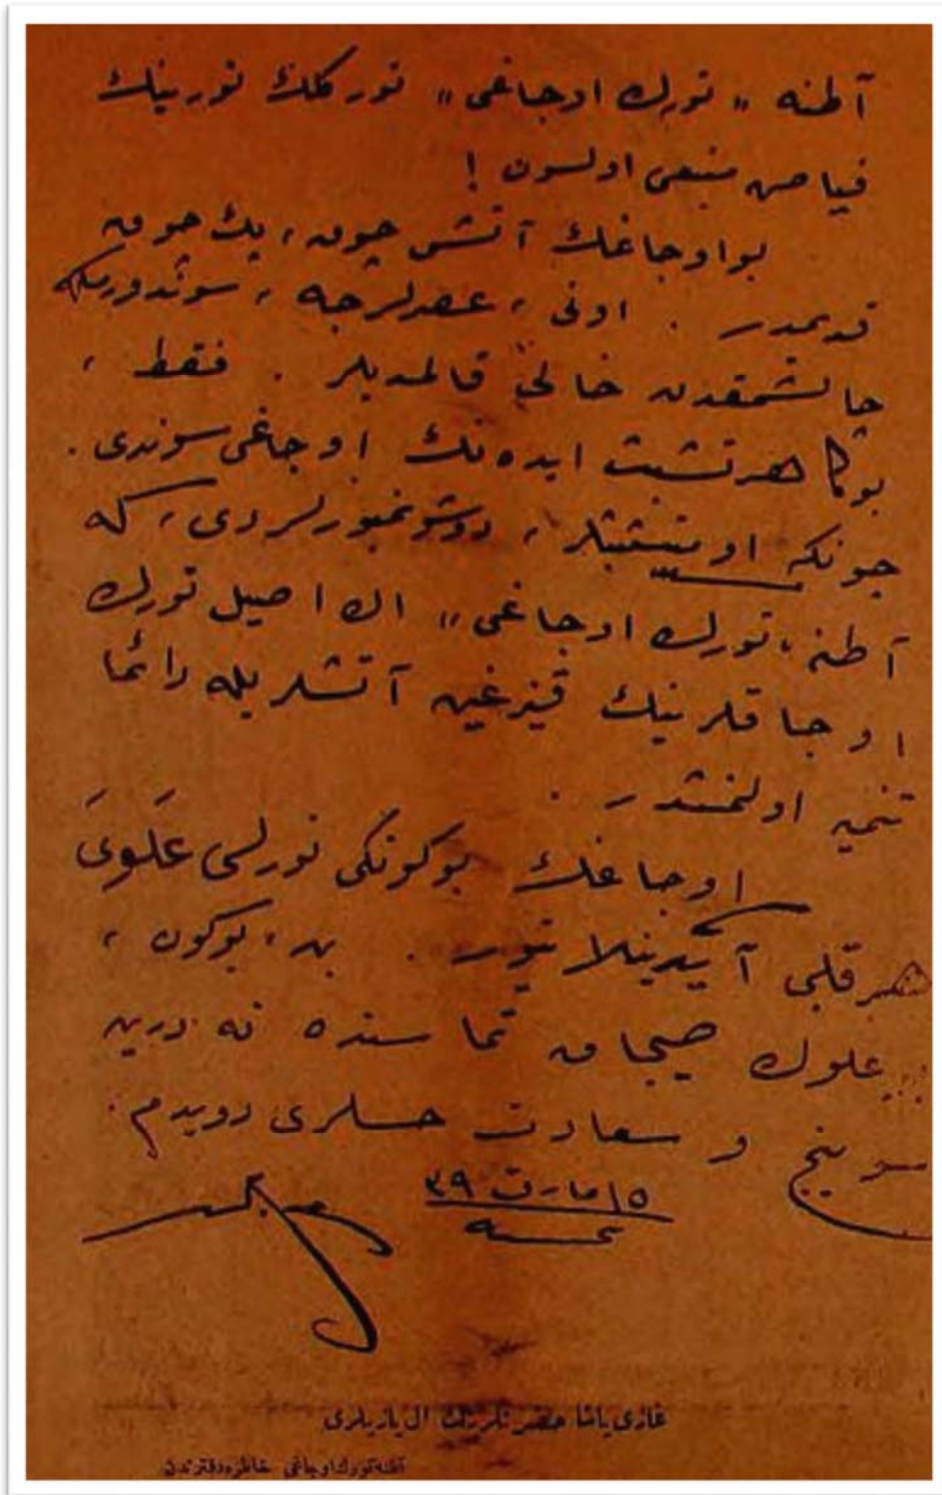 آطنه «تورك اوجاغى» توركلك نورينك
فياض منبعى اولسون !
بو اوجاغك آتشى چوق، پك چوق
قديمدر . اونى، عصرلرجه، سوندورمكه
چالشمقدن خالى قالمديلر . فقط،
بوكا هر تشبث ايده نك اوجاغى سوندى .
چونكه او متشبثلر، دوشونميورلردى، كه
آطنه «تورك اوجاغى» اك اصيل تورك
اوجاقلرينك قيزغين آتشلريله دائما
تنميه اولنمشدر .
اوجاغك بوكونكى نورلى علوى
هر قلبى آيدينلاتيور . بن، بوكون،
علوك صيجاق تماسنده نه درين
سوينج و سعادت حسلرى دويدم .
١٥ مارت ٣٩
غازى پاشا حضرتلرينك ال يازيلرى
آطنه تورك اوجاغى خاطره دفترندن